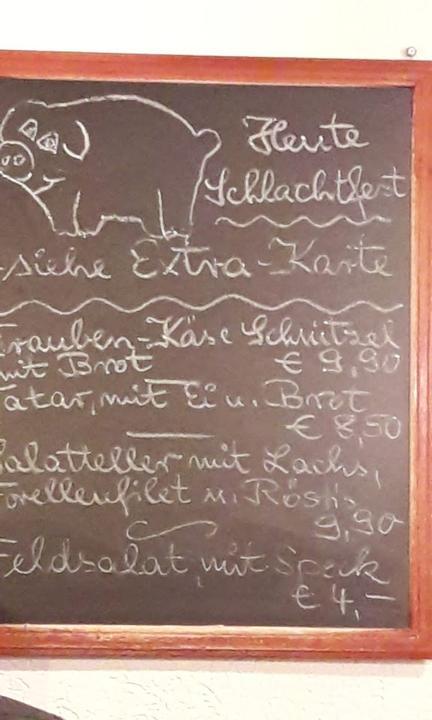 Heute
Schlachtfest
-siehe Extra-Karte
Trauben-Käse Schnitzel
mit Brot € 9,90
Tatar, mit Ei u. Brot
€ 8,50
Salatteller mit Lachs,
Forellenfilet u. Rösti,
9,90
Feldsalat, mit Speck
€ 4,-